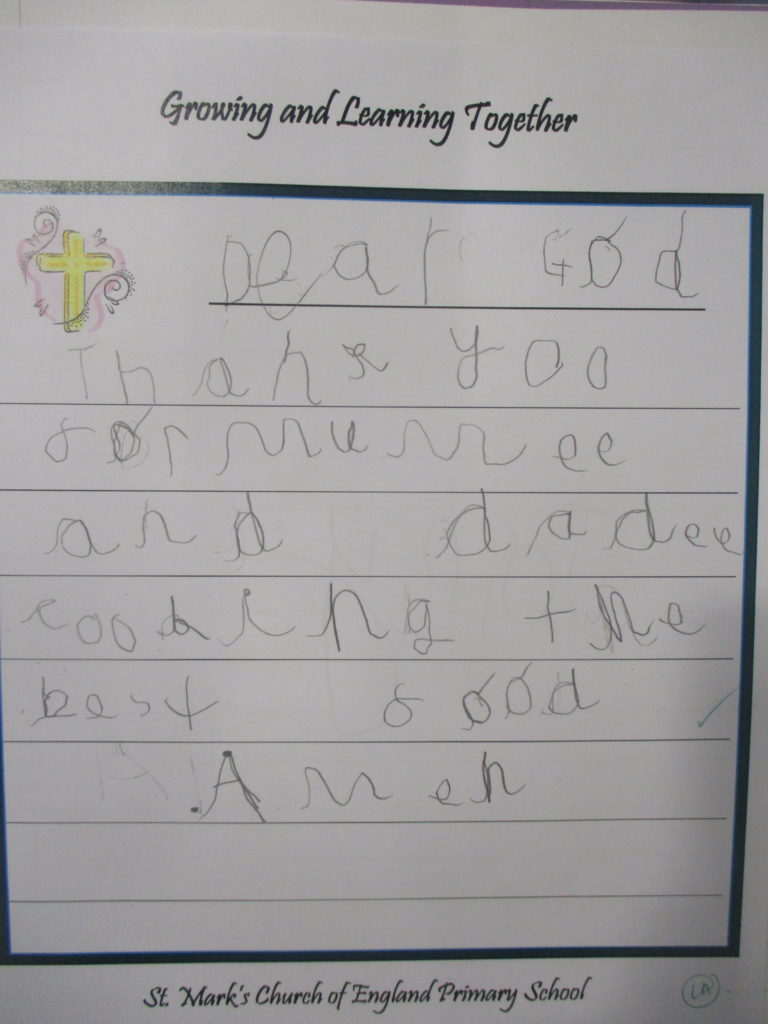 Growing and Learning Together
Dear God
Thank yoo
for mumee
and dadee
cooking the
best food
Amen
St. Mark's Church of England Primary School
LA